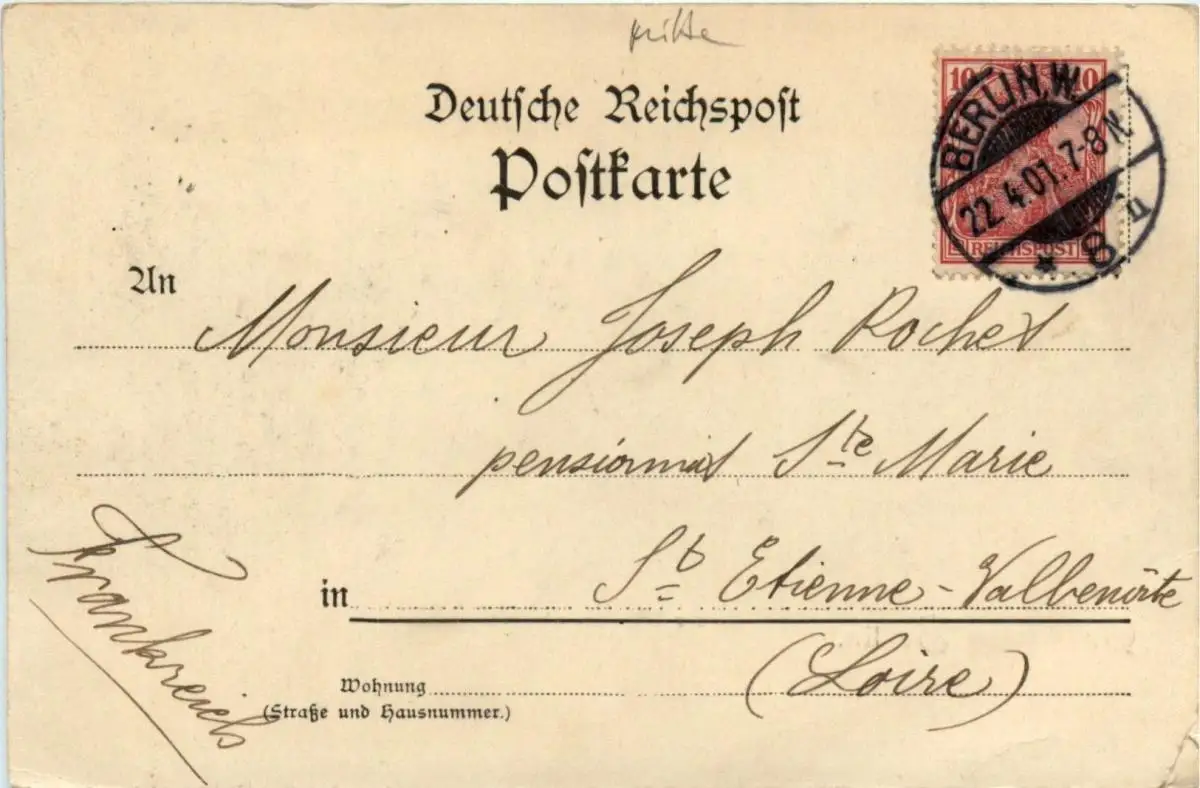 Mitte
Deutsche Reichspost
Postkarte
10 10
BERLIN, W.
22.4.01.7-8N
* 8 u
REICHSPOST
An
Monsieur Joseph Rochet
pensionnat Ste Marie
in St Etienne-Valbenôite
(Loire)
Wohnung
(Straße und Hausnummer.)
Frankreich